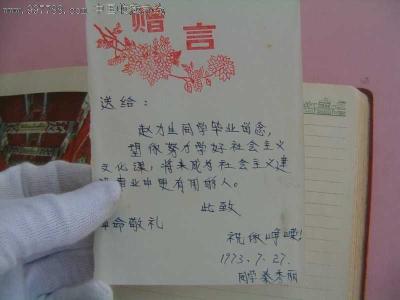 www.997788.com 中国收藏热线
赠言
送给：
赵力生同学毕业留念，
望你努力学好社会主义
文化课，将来成为社会主义建
事业中更有用的人。
此致
革命敬礼
祝你
1973.7.27.
同学 秦秀丽